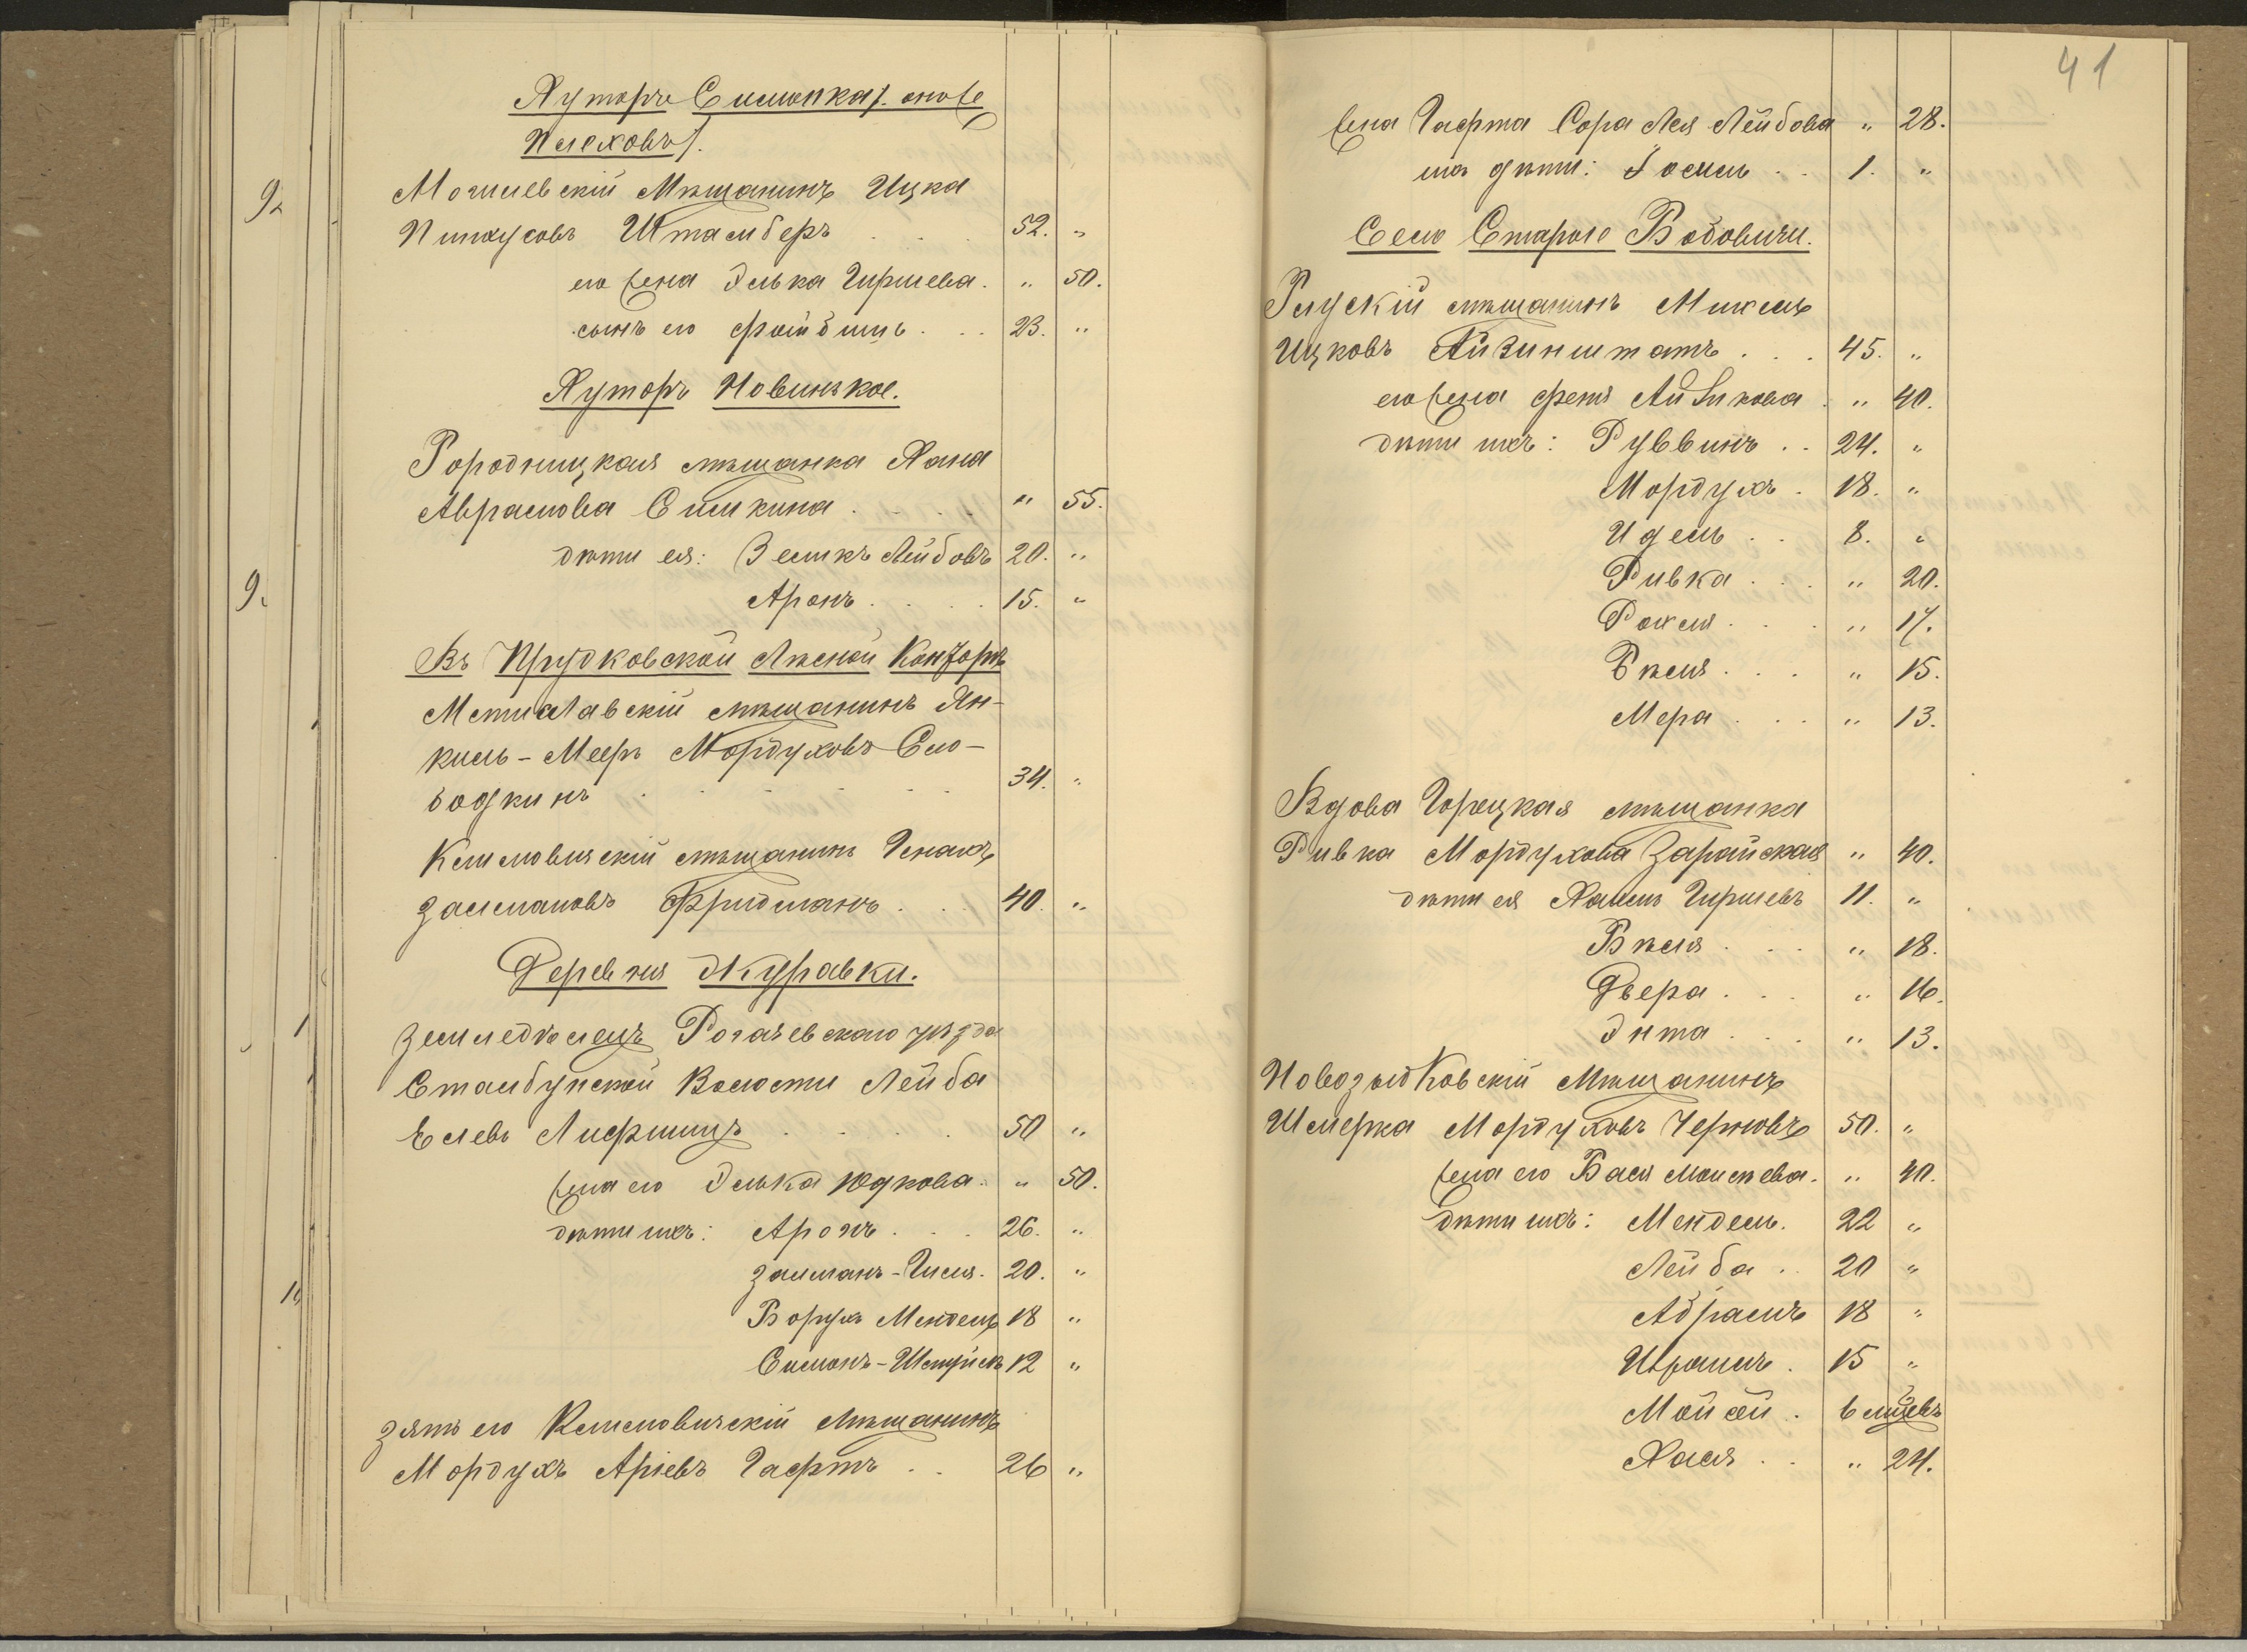 Хуторъ Симонка /. оноже
Пчеховъ /.
Могилевскій Мѣщанинъ Ицка
Пинхусовъ Штамберъ . . . 52. „
его жена Элька Гиршева. „ 50.
сынъ его Фаибишъ . . . 23. „
Хуторъ Новинское.
Городницкая мѣщанка Хана
Абрамова Симкина . . . . „ 55.
дѣти ея: Зеликъ Лейбовъ 20. „
Аронъ . . . . 15. „
Въ Прудковской Лѣсной Конторѣ
Мстиславскій мѣщанинъ Ян-
кель-Мееръ Мордуховъ Сло-
бодкинъ . . . . . 34. „
Климовичскій мѣщанинъ Генахъ
Залмановъ Фридманъ . . . 40. „
Деревня Журавки.
Земледѣлецъ Рогачевскаго уѣзда
Столбунской Волости Лейба
Елевъ Лифшицъ . . . . 50 „
жена его Элька Юдкова. „ 50.
дѣти ихъ: Аронъ . . . 26. „
Залманъ-Гиля. 20. „
Борухъ Мендель 18 „
Симонъ-Шмуилъ 12 „
Зять его Климовичскій Мѣщанинъ
Мордухъ Аріевъ Гафтъ . . 26 „
41
жена Гафта Сора Лея Лейбова „ 28.
ихъ дѣти: Іосель . . 1. „
Село Старые Бобовичи.
Глускій мѣщанинъ Михель
Ицковъ Айзинштатъ . . . 45. „
его жена Феня Айзикова . „ 40.
дѣти ихъ: Руввинъ . . 24. „
Мордухъ . 18. „
Идель . . 8. „
Ривка . . . „ 20.
Рохля . . . „ 17.
Бѣля . . . „ 15.
Мера . . . „ 13.
Вдова Горецкая мѣщанка
Ривка Мордухова Зарайская „ 40.
дѣти ея Хаимъ Гиршевъ 11. „
Бѣля . . . „ 18.
Двера . . . „ 16.
Эта . . . „ 13.
Новозыбковскій Мѣщанинъ
Шмерка Мордуховъ Черновъ 50. „
жена его Бася Моисѣева. „ 40.
дѣти ихъ: Мендель. 22 „
Лейба . . 20 „
Абрамъ 18 „
Ивраимъ . 15 „
Мойсей . 6 мѣсяцевъ
Хася . . „ 24.